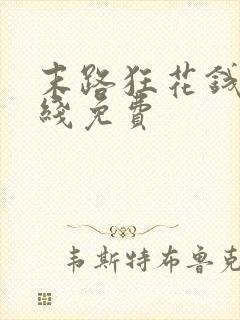 末路狂花錢
綫免費
韦斯特布鲁克